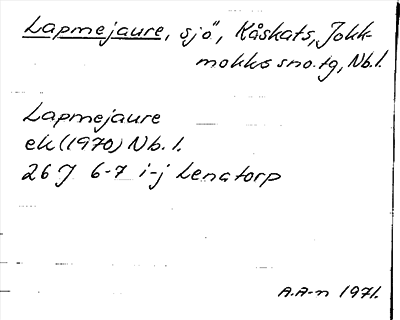 Lapmejaure, sjö, Kåskats, Jokk-
mokks sno.tg, Nb.l.
Lapmejaure
ek (1970) Nb. l.
26 J 6-7 i-j Lenatorp
A.A-n 1971.